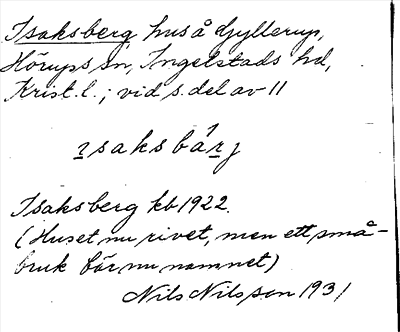 Isaksberg, hus å Gyllerup,
Hörups sn, Ingelstads hd,
Krist. l.; vid s. del av 11
ısaksbárj
Isaksberg kb 1922.
(Huset nu rivet, men ett små-
bruk bär nu namnet)
Nils Nilsson 1931